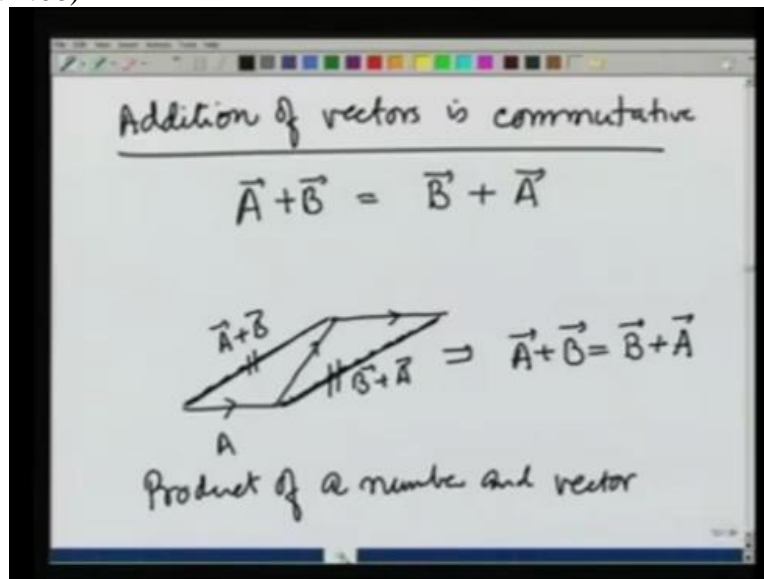 Addition of vectors is commutative
A⃗ + B⃗ = B⃗ + A⃗
A⃗+B⃗
B⃗+A⃗
⇒ A⃗+B⃗ = B⃗+A⃗
A
Product of a number and vector